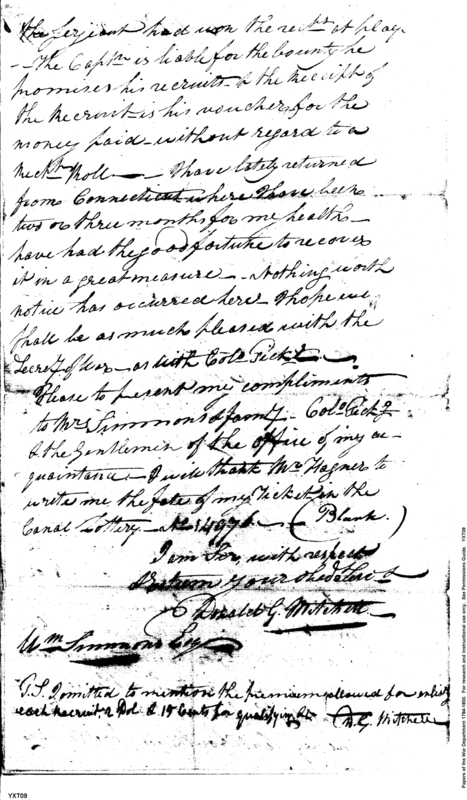 the serjeant had won the rec.ts at play
- The Capt.n is liable for the bounty he
promises his recruits - & the Receipt of
the Recruit is his voucher for the
money paid - without regard to a
Roll - I have lately returned
from Connecticut where I have been
two or three months for my health -
have had the good fortune to recover
it in a great measure - Nothing worth
notice has occurred here - I hope we
shall be as much pleased with the
Secret.y of War - as with Col.o Pick.g -
Please to present my compliments
to Mrs. Simmons & family - Col.o Pick.g
& the Gentlemen of the office of my ac-
quaintance - I will thank Mr. Hagner to
write me the fate of my Ticket in the
Canal Lottery - No. 14976 - (Blank.)
I am Sir, with respect
& esteem your obed. Serv.t
Donald G. Mitchell
Wm. Simmons Esq
P.S. I omitted to mention the premium allowed for
each Recruit 2 Dol. & 15 Cents for qualifying &c D.G. Mitchell
YXT09
Papers of the War Department 1784-1800. For research and instructional use only. See Permissions Guide. YXT09